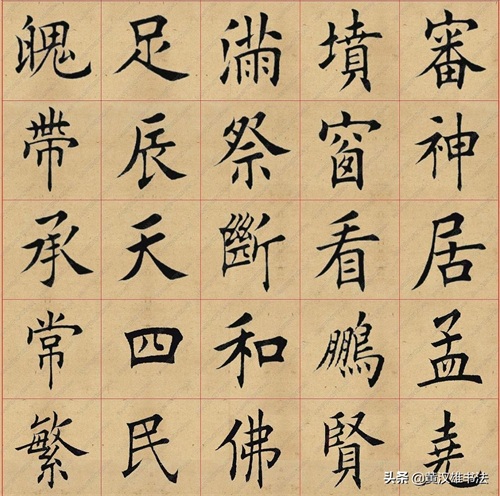 魄足滿墳審
帶辰祭窗神
承天斷看居
常四和鵬孟
繁民佛賢堯
头条 @童汉雄书法